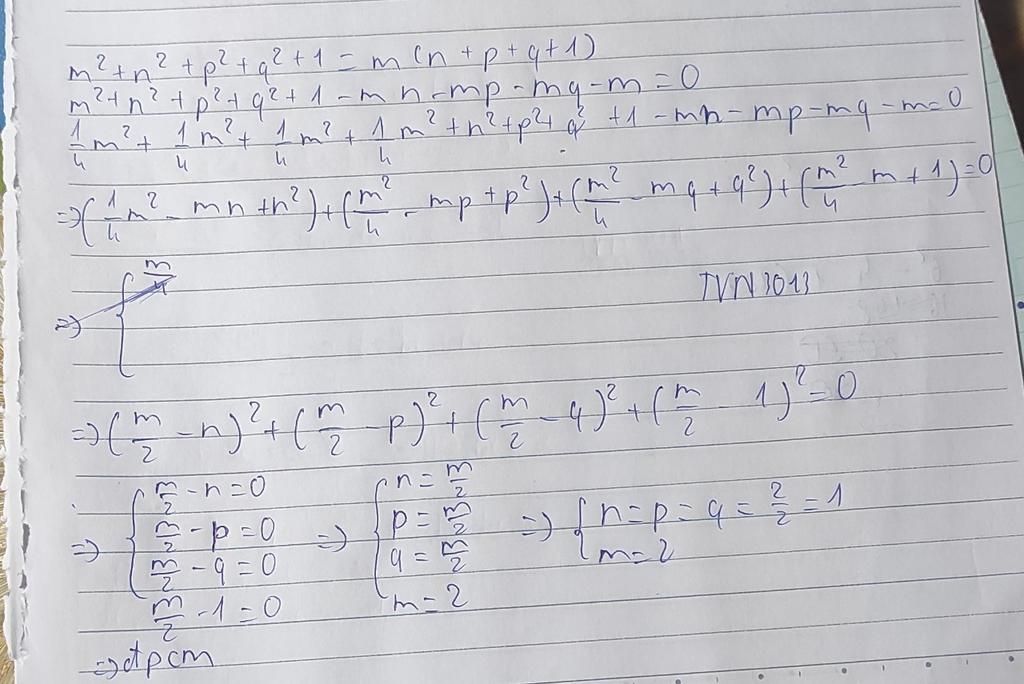 m² + n² + p² + q² + 1 = m (n + p + q + 1)
m² + n² + p² + q² + 1 - mn - mp - mq - m = 0
1/4 m² + 1/4 m² + 1/4 m² + 1/4 m² + n² + p² + q² + 1 - mn - mp - mq - m = 0
=> (1/4 m² - mn + n²) + (m²/4 - mp + p²) + (m²/4 - mq + q²) + (m²/4 - m + 1) = 0
=> {
TVN3013
=> (m/2 - n)² + (m/2 - p)² + (m/2 - q)² + (m/2 - 1)² = 0
=> { m/2 - n = 0
m/2 - p = 0
m/2 - q = 0
m/2 - 1 = 0
=> { n = m/2
p = m/2
q = m/2
m = 2
=> { n = p = q = 2/2 = 1
m = 2
=> đpcm